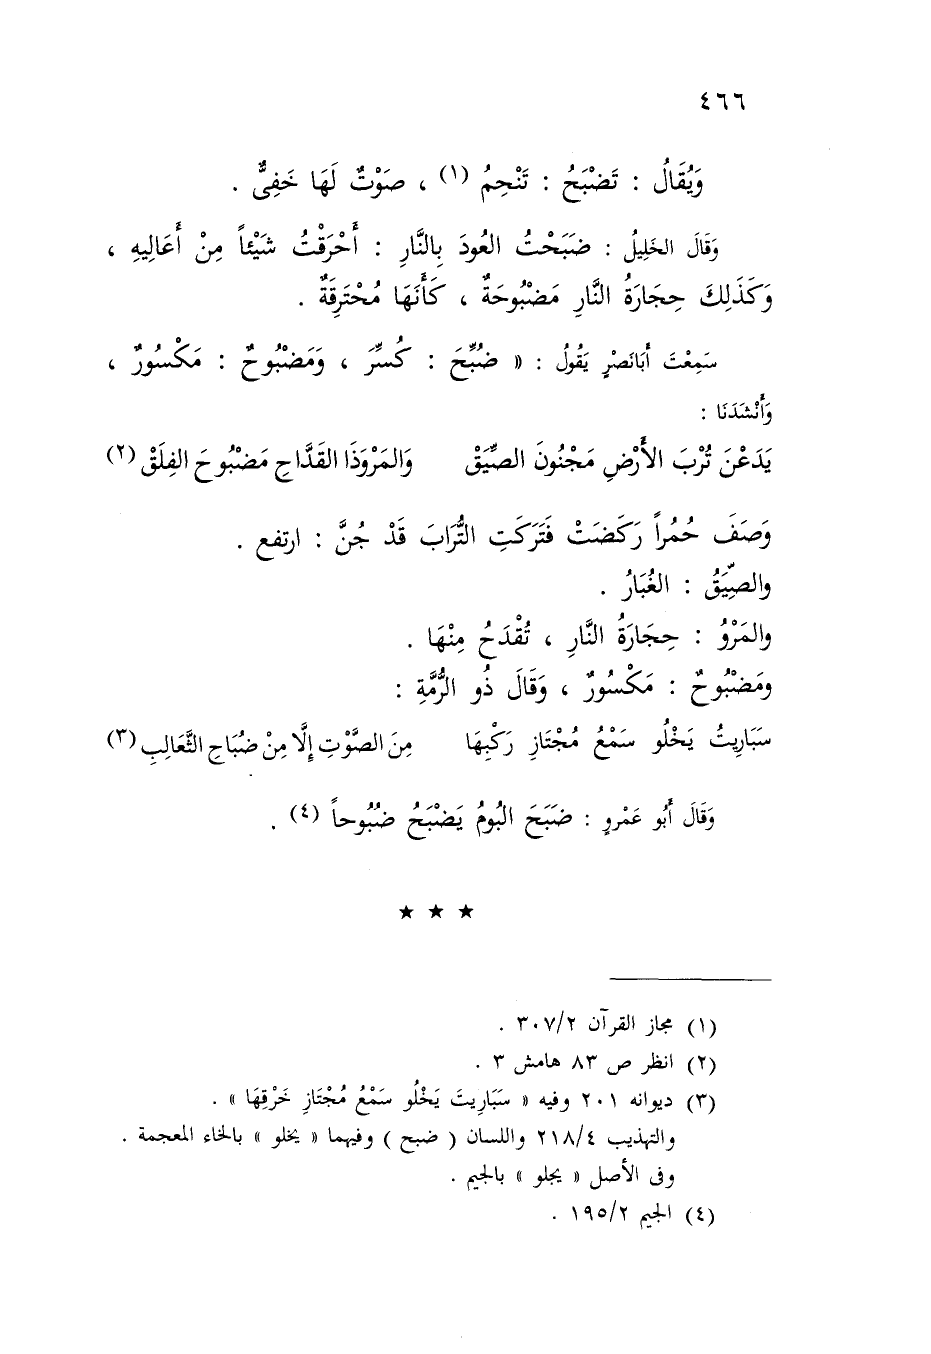 ٤٦٦
وَيُقَالُ : تَضْبَحُ : تَنْحِمُ (١) ، صَوْتٌ لَهَا خَفِىٌّ .
وَقَالَ الخَلِيلُ : ضَبَحْتُ العُودَ بِالنَّارِ : أَحْرَقْتُ شَيْئاً مِنْ أَعَالِيهِ ،
وَكَذَلِكَ حِجَارَةُ النَّارِ مَضْبُوحَةٌ ، كَأَنَهَا مُحْتَرِقَةٌ .
سَمِعْتَ أَبَانَصْرٍ يَقُولُ : « ضُبِّحَ : كُسِّرَ ، وَمَضْبُوحٌ : مَكْسُورٌ ،
وَأَنْشَدَنَا :
يَدَعْنَ تُرْبَ الأَرْضِ مَجْنُونَ الصِّيَقْ وَالمَرْوَذَا القَدَّاحِ مَضْبُوحَ الفِلَقْ (٢)
وَصَفَ حُمُراً رَكَضَتْ فَتَرَكَتِ التُّرَابَ قَدْ جُنَّ : ارتفع .
والصِّيَقُ : الغُبَارُ .
والمَرْوُ : حِجَارَةُ النَّارِ ، تُقْدَحُ مِنْهَا .
ومَضْبُوحٌ : مَكْسُورٌ ، وَقَالَ ذُو الرُّمَّةِ :
سَبَارِيتُ يَخْلُو سَمْعُ مُجْتَازِ رَكْبِهَا مِنَ الصَّوْتِ إِلَّا مِنْ ضُبَاحِ الثَّعَالِبِ (٣)
وَقَالَ أَبُو عَمْرٍو : ضَبَحَ البُومُ يَضْبَحُ ضُبُوحاً (٤) .
★ ★ ★
(١) مجاز القرآن ٣٠٧/٢ .
(٢) انظر ص ٨٣ هامش ٣ .
(٣) ديوانه ٢٠١ وفيه « سَبَارِيتَ يَخْلُو سَمْعُ مُجْتَازِ خَرْقِهَا » .
والتهذيب ٢١٨/٤ واللسان ( ضبح ) وفيهما « يخلو » بالخاء المعجمة .
وفى الأصل « يجلو » بالجيم .
(٤) الجيم ١٩٥/٢ .